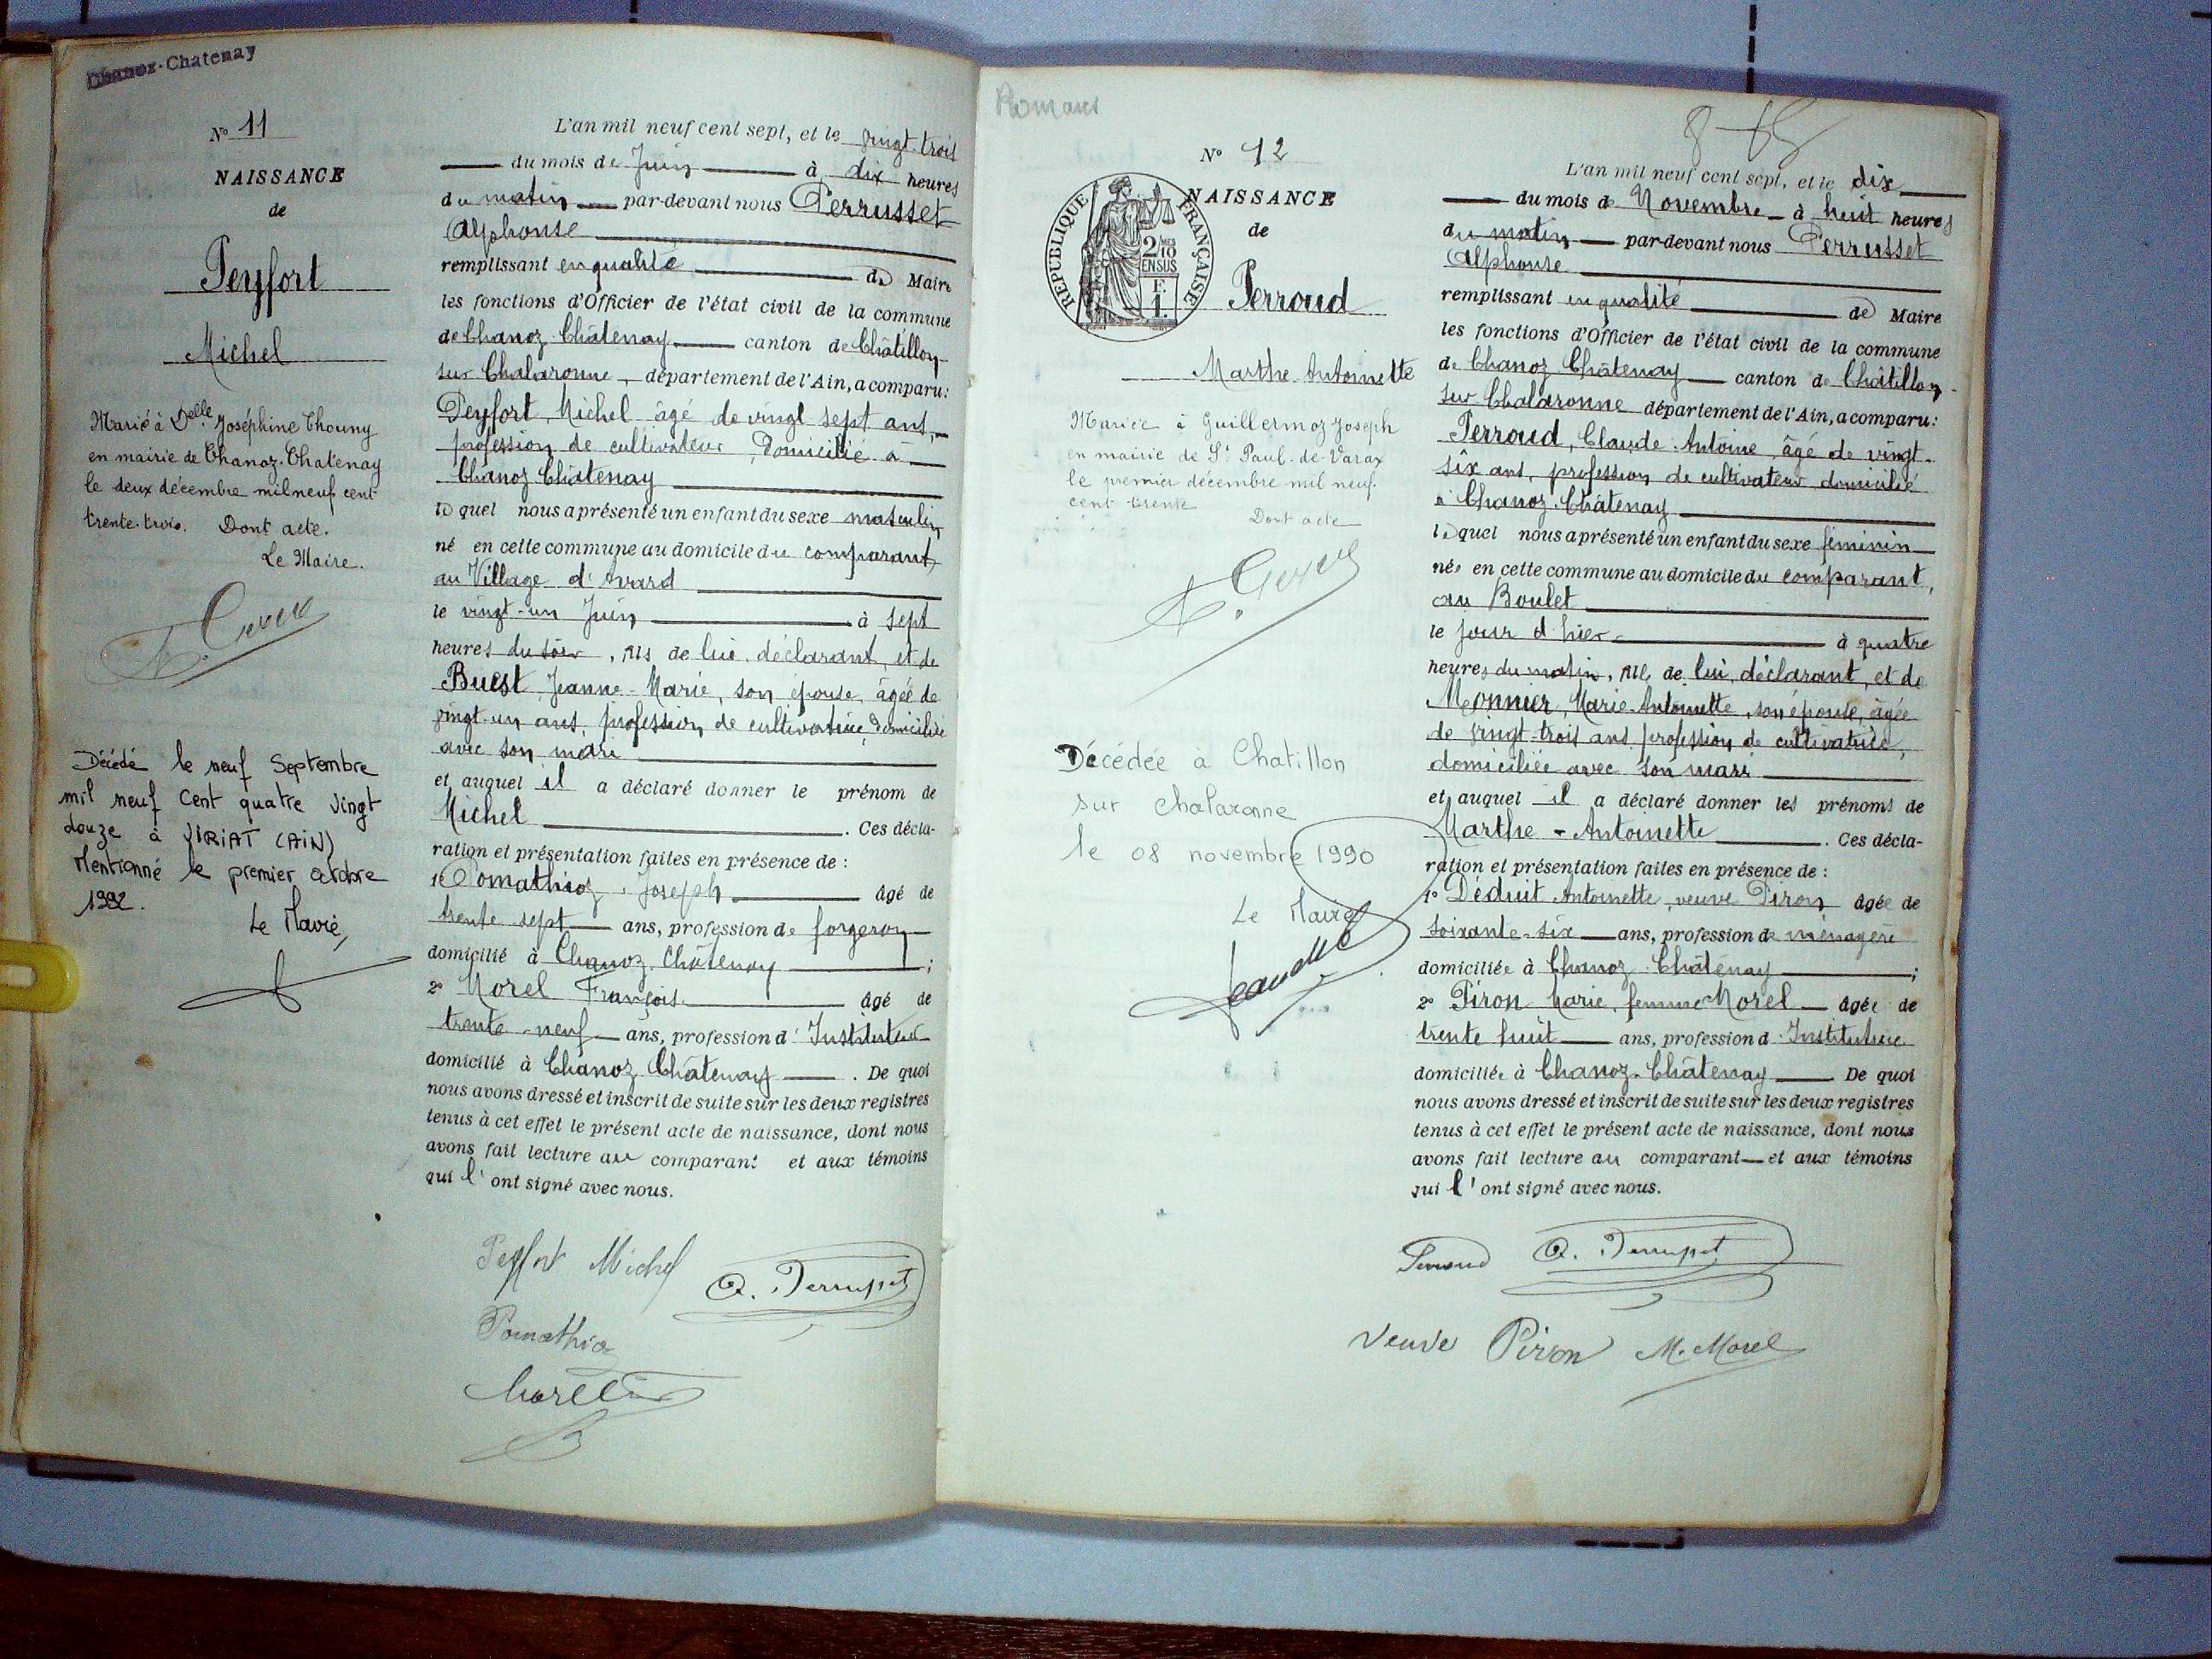 Chanoz-Chatenay
N° 11
NAISSANCE
de
Peyfort
Michel
Marié à Delle Joséphine Thouny
en mairie de Chanoz-Chatenay
le deux décembre mil neuf cent
trente-trois. Dont acte.
Le Maire.
Décédé le neuf Septembre
mil neuf cent quatre vingt
douze à VIRIAT (AIN)
Mentionné le premier octobre
1992.
Le Maire,
L'an mil neuf cent sept, et le vingt-trois
du mois de Juin à dix heures
du matin par-devant nous Perrusset
Alphonse
remplissant en qualité de Maire
les fonctions d'Officier de l'état civil de la commune
de Chanoz-Châtenay canton de Châtillon-
sur Chalaronne, département de l'Ain, a comparu:
Peyfort, Michel âgé de vingt sept ans,
profession de cultivateur, domicilié à
Chanoz Châtenay
lequel nous a présenté un enfant du sexe masculin
né en cette commune au domicile du comparant,
au Village d'Avard
le vingt-un Juin à sept
heures du soir, fils de lui, déclarant, et de
Buest Jeanne-Marie, son épouse, âgée de
vingt-un ans, profession de cultivatrice, domiciliée
avec son mari
et auquel il a déclaré donner le prénom de
Michel. Ces décla-
ration et présentation faites en présence de :
1° Pomathioz, Joseph âgé de
trente sept ans, profession de forgeron
domicilié à Chanoz-Châtenay ;
2° Morel François âgé de
trente-neuf ans, profession d'Instituteur
domicilié à Chanoz Châtenay. De quoi
nous avons dressé et inscrit de suite sur les deux registres
tenus à cet effet le présent acte de naissance, dont nous
avons fait lecture au comparant et aux témoins
qui l'ont signé avec nous.
Peyfort Michel
A. Perrusset
Pomathioz
Morel
Romans
N° 12
NAISSANCE
de
Perroud
Marthe-Antoinette
RÉPUBLIQUE FRANÇAISE
2/10
EN SUS
F.
1.
Mariée à Guillermoz Joseph
en mairie de St Paul-de-Varax
le premier décembre mil neuf
cent trente
Dont acte
Décédée à Chatillon
sur Chalaronne
le 08 novembre 1990
Le Maire
L'an mil neuf cent sept, et le dix
du mois de Novembre à huit heures
du matin par-devant nous Perrusset
Alphonse
remplissant en qualité de Maire
les fonctions d'Officier de l'état civil de la commune
de Chanoz Châtenay canton de Châtillon-
sur Chalaronne département de l'Ain, a comparu:
Perroud, Claude-Antoine, âgé de vingt-
six ans, profession de cultivateur domicilié
à Chanoz-Châtenay
lequel nous a présenté un enfant du sexe féminin
née en cette commune au domicile du comparant,
au Boulet
le jour d'hier à quatre
heures du matin, fille de lui, déclarant, et de
Monnier, Marie-Antoinette, son épouse, âgée
de vingt-trois ans profession de cultivatrice,
domiciliée avec son mari
et auquel il a déclaré donner les prénoms de
Marthe-Antoinette. Ces décla-
ration et présentation faites en présence de :
1° Déduit Antoinette, veuve Piron âgée de
soixante-six ans, profession de ménagère
domiciliée à Chanoz-Châtenay ;
2° Piron Marie, femme Morel âgée de
trente huit ans, profession d'Institutrice
domiciliée à Chanoz-Châtenay De quoi
nous avons dressé et inscrit de suite sur les deux registres
tenus à cet effet le présent acte de naissance, dont nous
avons fait lecture au comparant et aux témoins
qui l'ont signé avec nous.
Perroud
A. Perrusset
Veuve Piron
M. Morel